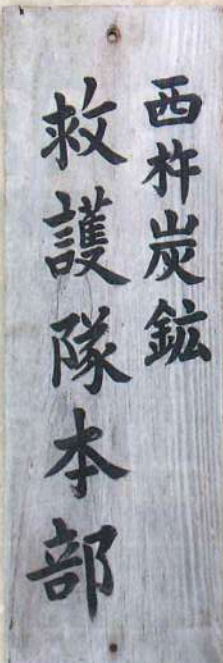 西杵炭鉱
救護隊本部